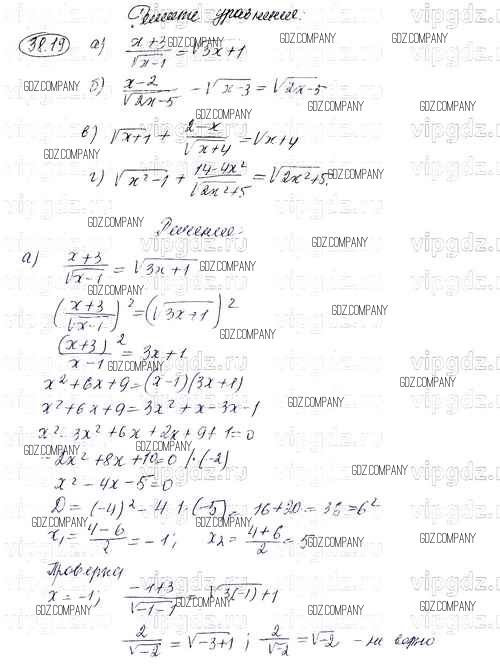 Решите уравнения:
38.19 а) (x+3)/√(x-1) = √(3x+1)
б) (x-2)/√(2x-5) - √(x-3) = √(2x-5)
в) √(x+1) + (2-x)/√(x+4) = √(x+4)
г) √(x²-1) + (14-4x²)/√(2x²+5) = √(2x²+5).
Решение:
а) (x+3)/√(x-1) = √(3x+1)
((x+3)/√(x-1))² = (√(3x+1))²
(x+3)²/(x-1) = 3x+1
x²+6x+9=(x-1)(3x+1)
x²+6x+9=3x²+x-3x-1
x²-3x²+6x+2x+9+1=0
-2x²+8x+10=0 |·(-2)
x²-4x-5=0
D = (-4)²-4·1·(-5) = 16+20 = 36=6²
x₁ = (4-6)/2 = -1; x₂ = (4+6)/2 = 5
Проверка
x = -1; (-1+3)/√(-1-1) = √(3(-1)+1)
2/√-2 = √(-3+1) ; 2/√-2 = √-2 - не верно
GDZ.COMPANY
vipgdz.ru